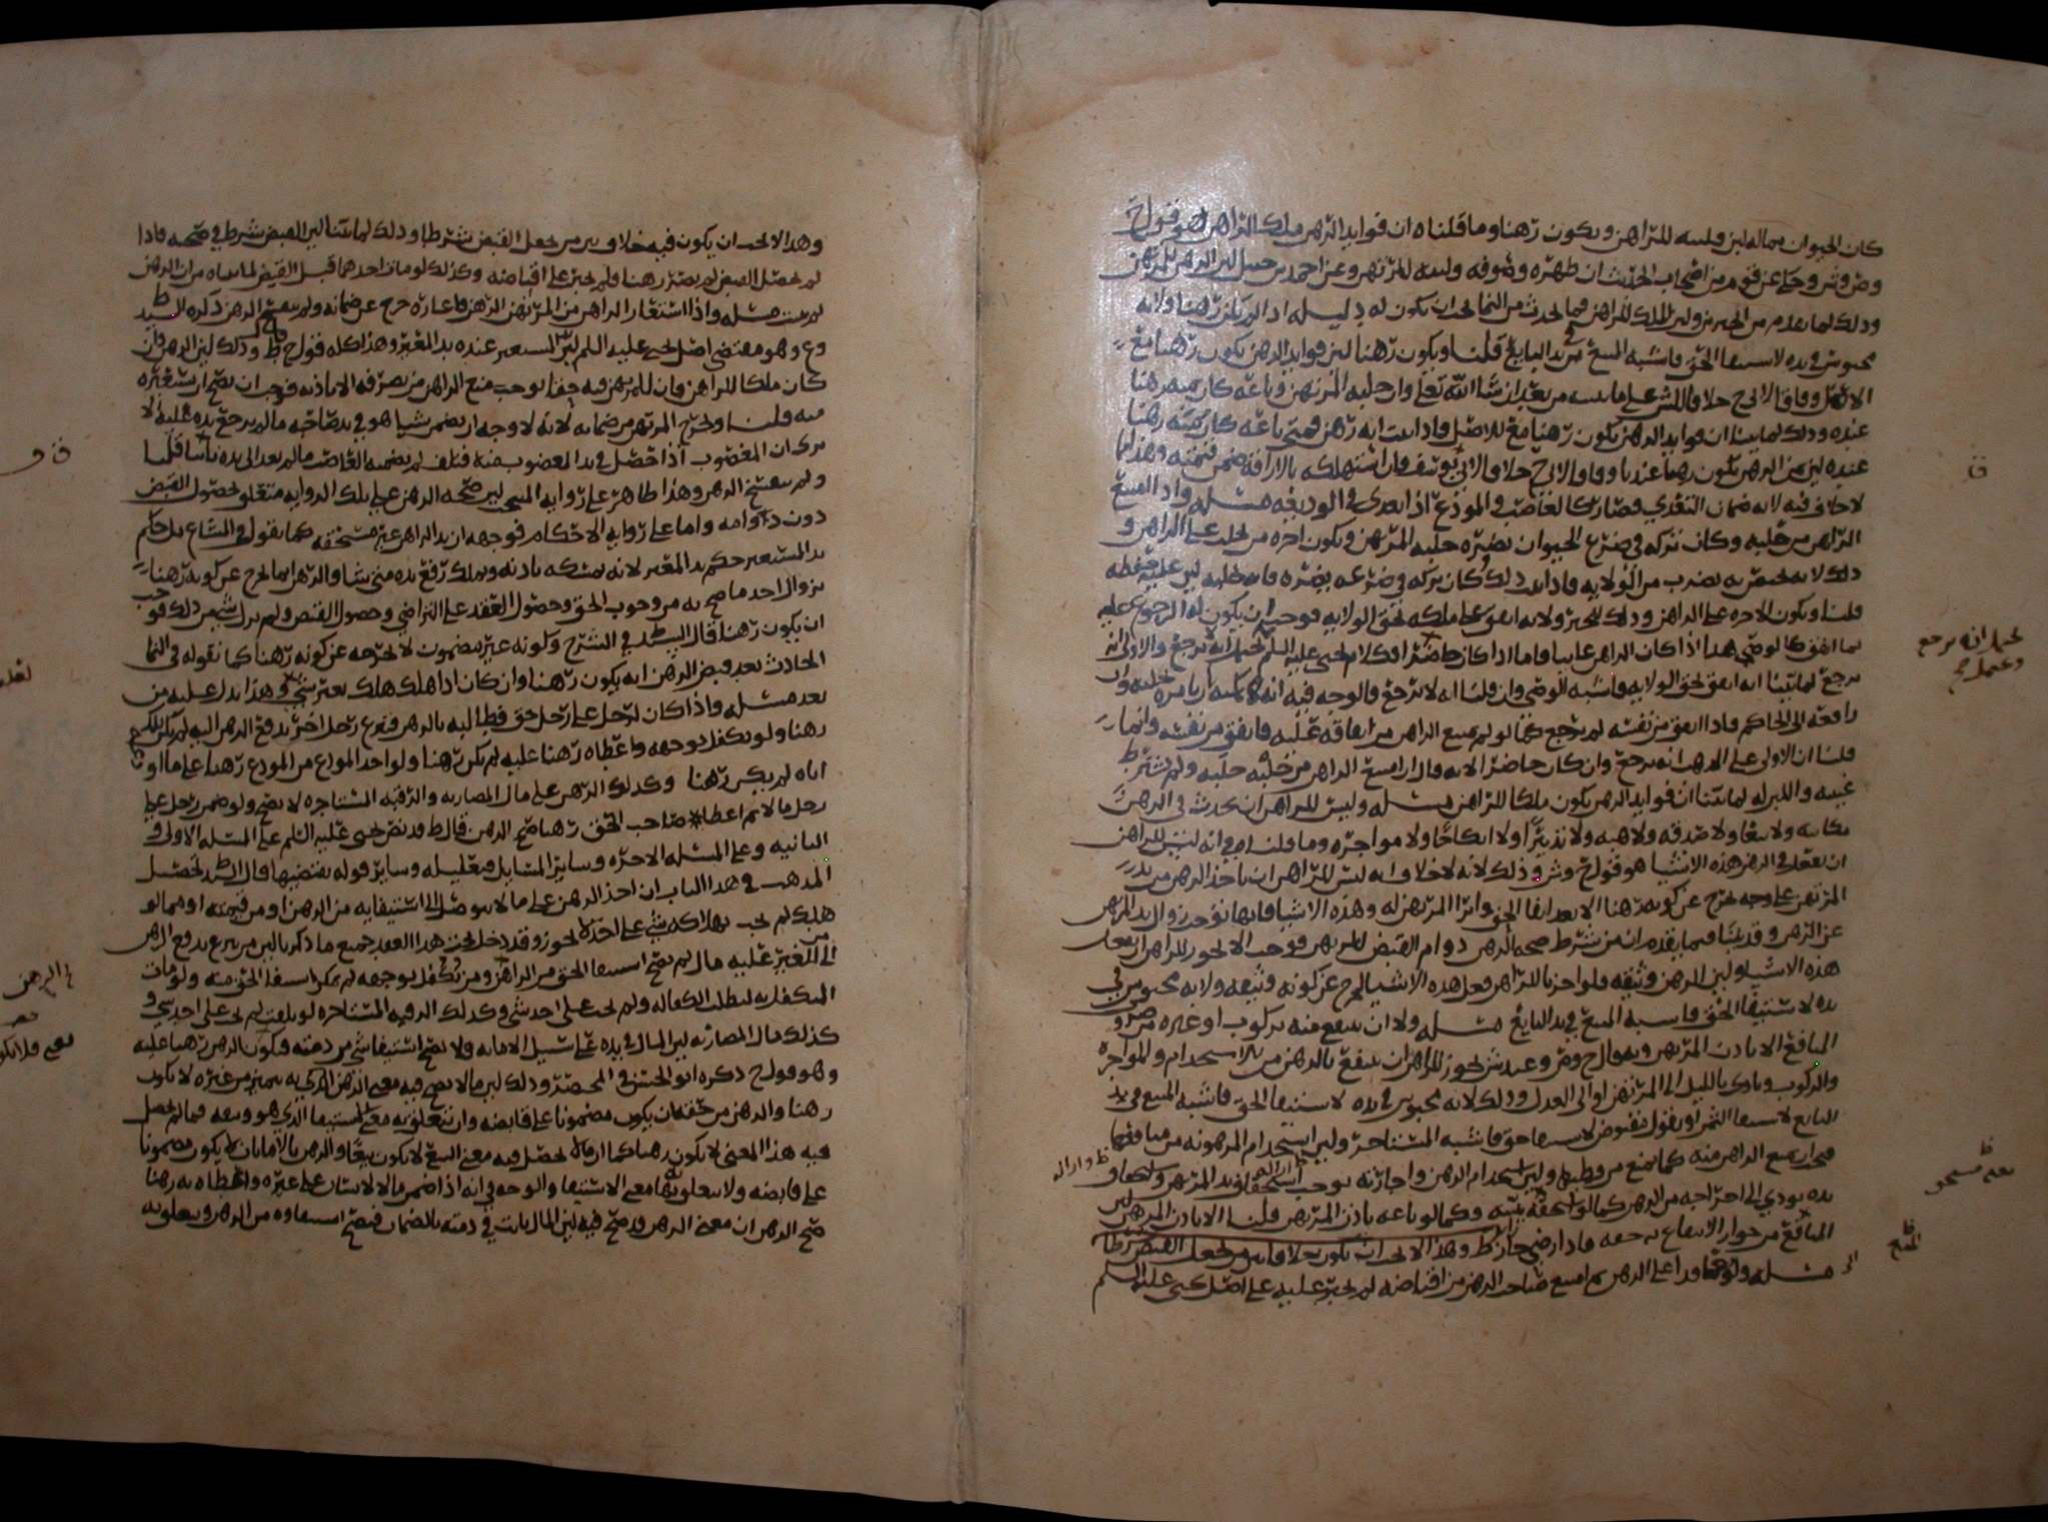 كان الحيوان بماله لبن ولبنه للراهن ويكون رهنا وما قلناه ان فوايد الرهن ملك الراهن هو قول ح
وص وش وحكي عن قوم من اصحاب الحديث ان ظهره وصوفه ولبنه للمرتهن وعن احمد بن حنبل لبن الرهن للمرتهن
وذلك لما تقدم من الخبر ولان الملك للراهن فما يحدث من النما يجب ان يكون له دليله اذا لم يكن رهنا ولانه
محبوس في يده لاستيفا الحق فاشبه المبيع في يد البايع قلنا ويكون رهنا لان فوايد الرهن يكون رهنا مع
الاصل وفاقا لابي ح خلافا للش على ما نبينه من بعد ان شا الله تعالى وان حلبه المرتهن وباعه كان ثمنه رهنا
عنده وذلك لما بينا ان فوايد الرهن يكون رهنا مع الاصل فاذا ثبت انه رهن فمتى باعه كان ثمنه رهنا
عنده لان ثمن الرهن يكون رهنا عندنا وفاقا لابي ح خلافا لابي يوسف فان استهلكه بالاراقة ضمن قيمته وهذا لما
لا خلاف فيه لانه ضمان التعدي فصار كالغاصب والمودع اذا تعدى في الوديعة مسئله واذا امتنع
الراهن من حلبه وكان تركه في ضرع الحيوان يضره حلبه المرتهن ويكون اجره من يحلب على الراهن و
ذلك لانه يختص به بضرب من الولايه فاذا ثبت ذلك وكان تركه في ضرعه يضره فانه يحلبه لان عليه حفظه
قلنا ويكون الاجره على الراهن وذلك للخبر ولانه انفق على ملكه بحق الولايه فوجب ان يكون له الرجوع عليه
بما انفق كالوصي هذا اذا كان الراهن غايبا فاما اذا كان حاضرا فكلام يحيى عليه السلم يحتمل انه يرجع والاولى انه
يرجع لما بينا انه انفق بحق الولايه فاشبه الوصي وان قلنا انه لا يرجع فالوجه فيه انه يمكنه ان يامره بحلبه وان
رافعه الى الحاكم فاذا انفق من نفسه لم يرجع كما لو لم يمتنع الراهن من انفاقه عليه فانفق من نفسه وانما
قلنا ان الاولى على المذهب انه يرجع وان كان حاضرا لانه قال ان امتنع الراهن من حلبه حلبه ولم يشترط
غيبته واللبن له لما بينا ان فوايد الرهن يكون ملكا للراهن مسئله وليس للراهن ان يحدث في الرهن
كتابه ولا بيعا ولا صدقه ولا هبه ولا تدبيرا ولا انكاحا ولا مواجره وما قلناه في انه ليس للراهن
ان يفعل في الرهن هذه الاشيا هو قول ح وش وذلك لانه لا خلاف انه ليس للراهن ان ياخذ الرهن من يد
المرتهن على وجه يخرج عن كونه رهنا الا بعد ايفا الحق وابرا المرتهن له وهذه الاشيا فانها توجب زوال يد المرتهن
عن الرهن وقد بينا فيما تقدم ان من شرط صحه الرهن دوام القبض للمرتهن فوجب الا يجوز للراهن ان يفعل
هذه الاشيا ولان الرهن وثيقه فلو اجزنا للراهن فعل هذه الاشيا لخرج عن كونه وثيقه ولانه محبوس في
يده لاستيفا الحق فاشبه المبيع في يد البايع مسئله ولا ان ينتفع منه بركوب او غيره من ضروب
المنافع الا باذن المرتهن وبه قال ح وص وعند ش يجوز للراهن ان ينتفع بالرهن من الاستخدام والمواجره
والركوب وياوي بالليل الى المرتهن او الى العدل وذلك لانه محبوس في يده لاستيفا الحق فاشبه المبيع في يد
البايع لاستيفا الثمن او نقول مقبوض لاستيفا حق فاشبه المستاجر ولان استخدام المرهونه من منافعها
فيجب ان يمنع الراهن منه كما يمنع من وطيها ولان استخدام الرهن واجارته يوجب استحقاق يد المرتهن
يده يودي الى اخراجه من الرهن كما لو استحقه ببينه وكما لو باعه باذن المرتهن قلنا الا باذن المرتهن لان
المنافع من جواز الانتفاع به حقه فاذا رضي جاز ط وهذا الا يجب ان يكون خلافا بين من يجعل القبض شرطا
مسئله ولو تعاقدا على الرهن ثم امتنع صاحب الرهن من اقباضه لم يجبر عليه على اصل يحيى عليه السلم
يحتمل انه يرجع
وهذا الا يجب ان يكون فيه خلاف بين من يجعل القبض شرطا وذلك لما بينا لان القبض شرط في صحته فاذا
لم يحصل القبض لم يصر رهنا فلم يجبر على اقباضه وكذلك لو مات احدهما قبل القبض لما بيناه من ان الرهن
لم يثبت مسئله واذا استعار الراهن من المرتهن الرهن فاعاره خرج عن ضمانه ولم ينفسخ الرهن ذكره السيد ط
وع وهو مقتضى اصل يحيى عليه السلم لان المستعير عنده يد المعير وهذا كله قول ح ط وذلك لان الرهن وان
كان ملكا للراهن فان للمرتهن فيه حقا يوجب منع الراهن من تصرفه الا باذنه فوجب ان يصح ان يستعيره
منه قلنا وخرج المرتهن من ضمانه لانه لا وجه لان يضمن شيا هو في يد صاحبه ما لم يرجع يده عليه الا
ترى ان المغصوب اذا حصل في يد المغصوب منه فتلف لم يضمنه الغاصب ما لم يعد الى يده ثانيا قلنا
ولم ينفسخ الرهن وهذا ظاهر على روايه المنتخب لان صحه الرهن على تلك الروايه متعلق بحصول القبض
دون دوامه واما على روايه الاحكام فوجهه ان يد الراهن غير مستحقه كما نقول في المشاع بل حكم
يد المستعير حكم يد المعير لانه يمسكه باذنه ويملك رفع يده متى شا والرهن انما يخرج عن كونه رهنا
بزوال احد ما صح به من وجوب الحق وحصول العقد على التراضي وحصول القبض ولم يزل شي من ذلك فوجب
ان يكون رهنا قال السيد ط في الشرح وكونه غير مضمون لا يخرجه عن كونه رهنا كما نقوله في النما
الحادث بعد قبض الرهن انه يكون رهنا وان كان اذا هلك هلك بغير شي وهذا يدل عليه من
بعد مسئله فاذا كان لرجل على رجل حق فطالبه بالرهن فتبرع رجل اخر بدفع الرهن اليه لم يكن ذلك
رهنا ولو تكفل بوجهه واعطاه رهنا عليه لم يكن رهنا ولو اخذ المودع من المودع رهنا على ما اودعه
اياه لم يكن رهنا وكذلك الرهن على مال المضاربه والرقبه المستاجره لا يصح ولو ضمن رجل على
رجل مالا ثم اعطاه صاحب الحق رهنا صح الرهن قال ط قد نص يحيى عليه السلم على المسئله الاولى و
الثانيه وعلى المسئله الاخره وساير المسايل فتعليله وساير قوله يقتضيها قال السيد ط تحصيل
المذهب في هذا الباب ان اخذ الرهن على ما لا يتوصل الى استيفايه من الرهن او من قيمته او فيما لو
هلك لم يجب بهلاكه شي على احد لا يجوز وقد دخل تحت هذا العقد جميع ما ذكرنا لان من تبرع بدفع الرهن
الى الغير عليه مال لم يصح استيفا الحق من الراهن ومن تكفل بوجهه لم يمكن استيفا الحق منه ولو مات
المتكفل به لبطلت الكفاله ولم يجب على احد شي وكذلك الرقبه المستاجره لو تلفت لم يجب على احد شي و
كذلك مال المضاربه لان المال في يده على سبيل الامانه ولا يصح استيفا شي من ذمته فيكون الرهن رهنا عليه
وهو قول ح ذكره ابو الحسن في المختصر وذلك لان ما لا يصح فيه معنى الرهن الذي به يتميز من غيره لا يكون
رهنا والرهن من حقه ان يكون مضمونا على قابضه وان يتعلق به معنى الاستيفا الذي هو وصفه فما لم يحصل
فيه هذا المعنى لا يكون رهنا كما ان ما لا يحصل فيه معنى البيع لا يكون بيعا والرهن بالامانات لا يكون مضمونا
على قابضه ولا يتعلق بها معنى الاستيفا والوجه في انه اذا ضمن مالا لانسان على غيره واعطاه به رهنا
صح الرهن ان معنى الرهن قد صح فيه لان المال يثبت في ذمته بالضمان فيصح استيفاوه من الرهن ويتعلق به
الرهن